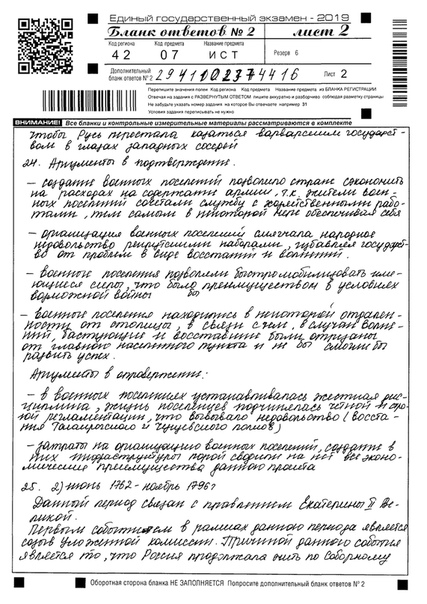 Единый государственный экзамен - 2019
Бланк ответов № 2
лист 2
Код региона Код предмета Название предмета
42 07 ИСТ
Резерв - 6
Дополнительный бланк ответов № 2
2941002374416
Лист 2
Перепишите значения полей Код региона, Код предмета, Название предмета из БЛАНКА РЕГИСТРАЦИИ
Отвечая на задания с РАЗВЕРНУТЫМ ОТВЕТОМ, пишите аккуратно и разборчиво, соблюдая разметку страницы
Не забудьте указать номер задания, на которое Вы отвечаете, например 31
Условия задания переписывать не нужно
ВНИМАНИЕ! Все бланки и контрольные измерительные материалы рассматриваются в комплекте
чтобы Русь перестала казаться варварским государст-
вом в глазах западных соседей
24. Аргументы в подтверждение:
– создание военных поселений позволило стране сэкономить
на расходах на содержание армии, т.к. жители воен-
ных поселений сочетали службу с хозяйственными рабо-
тами, тем самым в некоторой мере обеспечивая себя
– организация военных поселений смягчала народное
недовольство рекрутскими наборами, избавляя государст-
во от проблем в виде восстаний и волнений.
– военные поселения позволяли быстро мобилизовать име-
ющиеся силы, что было преимуществом в условиях
возможной войны
бы
– военные поселения находились в некоторой отдален-
ности от столицы, в связи с чем, в случаи волне-
ний, бастующие и восставшие были отрезаны
от главного населенного пункта и не бы смогли бы
развить успех.
Аргументы в опровержение:
– в военных поселениях устанавливалась жесткая дис-
циплина, жизнь поселенцев подчинялась четкой и
регламентации, что вызывало недовольство (восста-
ния Таганрогского и Чугуевского полков)
– затраты на организацию военных поселений, создание в
них инфраструктуры порой сводили на нет все эконо-
мические преимущества данного проекта
25. 2) июнь 1762 - ноябрь 1796г
Данный период связан с правлением Екатерины II Ве-
ликой.
Первым событием в рамках данного периода является
созыв Уложенной комиссии. Причиной данного события
является то, что Россия продолжала жить по Соборному
Оборотная сторона бланка НЕ ЗАПОЛНЯЕТСЯ Попросите дополнительный бланк ответов № 2